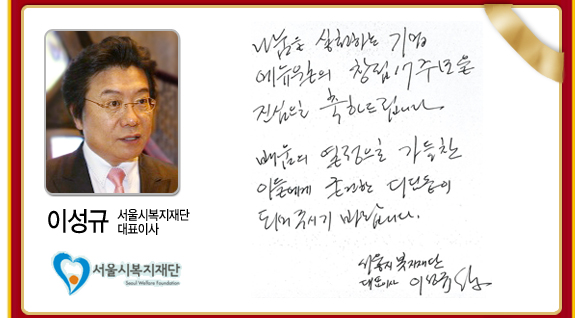 나눔을 실천하는 기업
에듀윌의 창립 17주년을
진심으로 축하드립니다.
배움의 열정으로 가득찬
이들에게 든든한 디딤돌이
되어 주시기 바랍니다.
서울시복지재단
대표이사 이성규
이성규 서울시복지재단
대표이사
서울시복지재단
Seoul Welfare Foundation